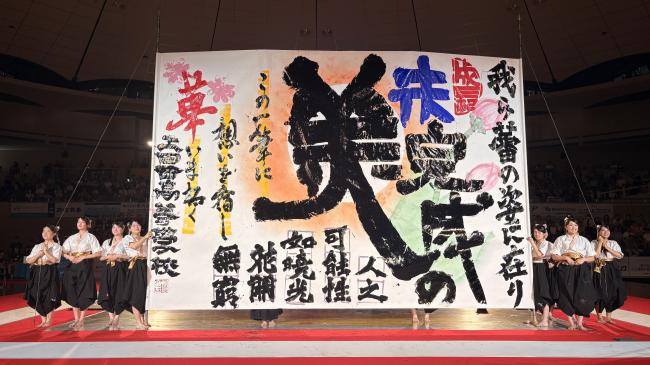 我ら蕾の姿に在り
未完成の
美
人之
可能性
如曉光
花開
無窮
この一筆に
想いを宿し
いま咲く
華
高等学校